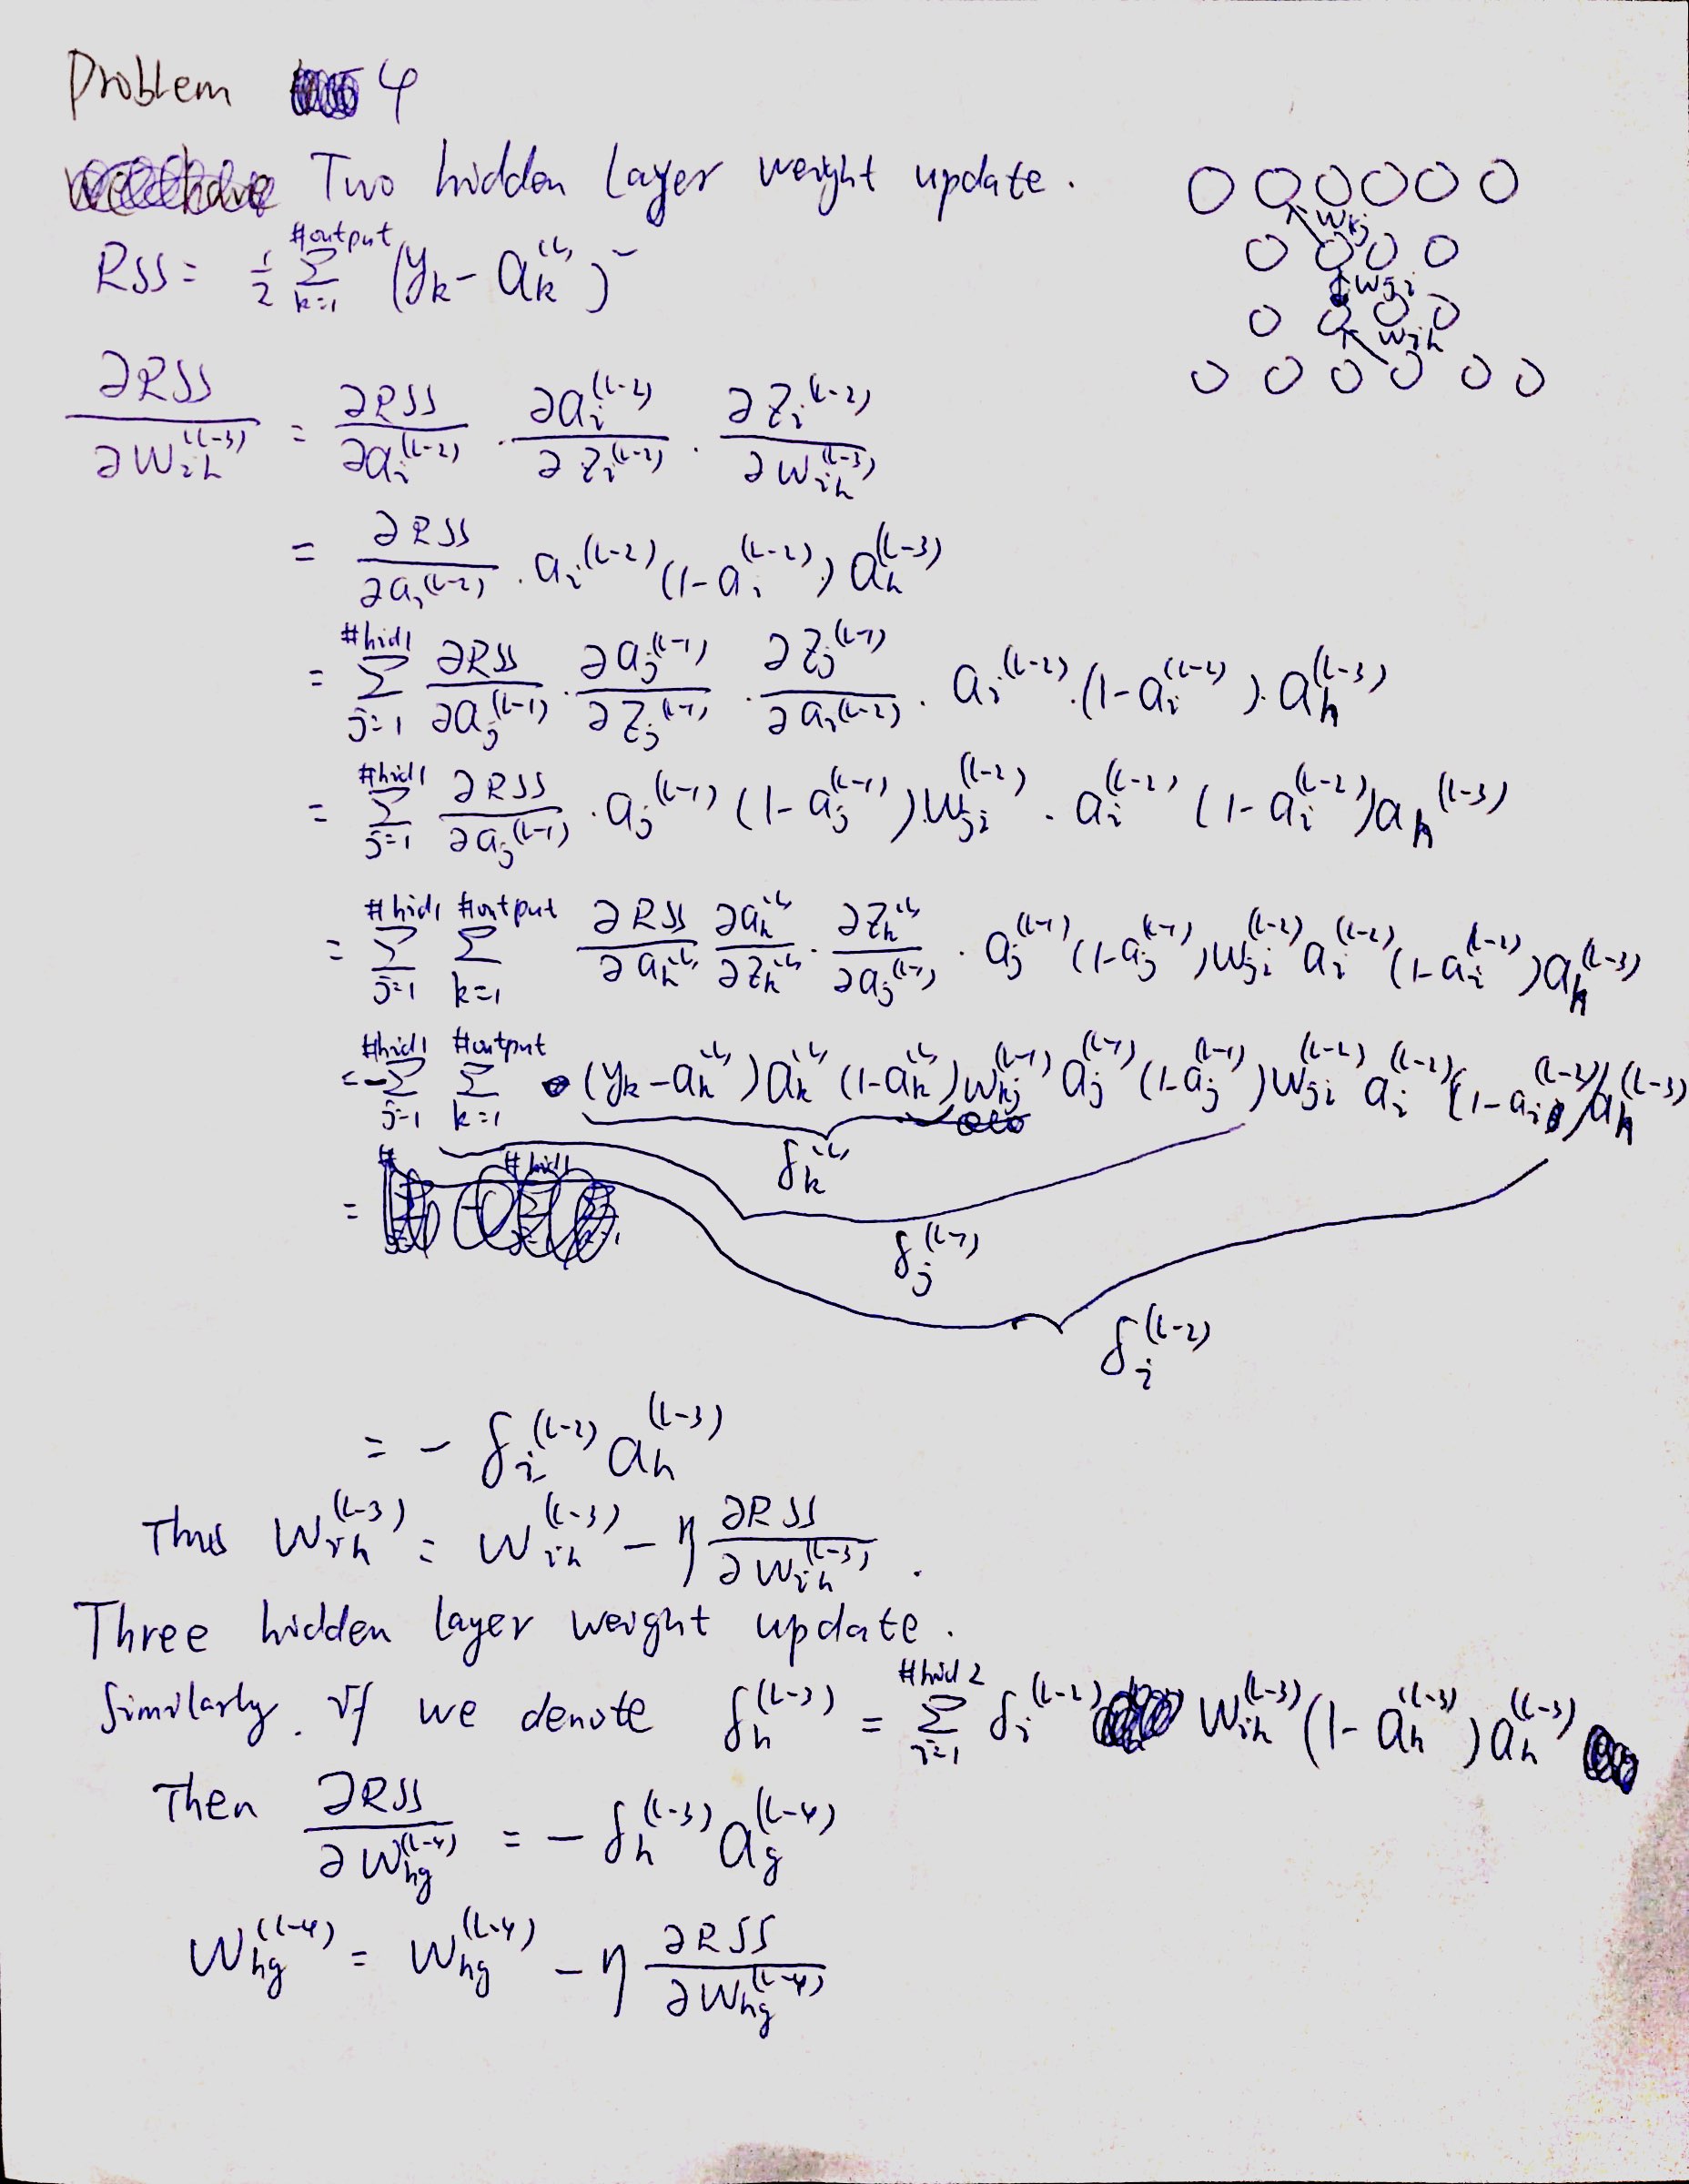 Problem 4
Two hidden layer weight update.
RSS = 1/2 Σ_{k=1}^{#output} (y_k - a_k^{(L)})^2
w_kj
w_ji
w_ih
∂RSS/∂w_ih^{(L-3)} = ∂RSS/∂a_i^{(L-2)} · ∂a_i^{(L-2)}/∂z_i^{(L-2)} · ∂z_i^{(L-2)}/∂w_ih^{(L-3)}
= ∂RSS/∂a_i^{(L-2)} · a_i^{(L-2)} (1-a_i^{(L-2)}) a_h^{(L-3)}
= Σ_{j=1}^{#hid1} ∂RSS/∂a_j^{(L-1)} · ∂a_j^{(L-1)}/∂z_j^{(L-1)} · ∂z_j^{(L-1)}/∂a_i^{(L-2)} · a_i^{(L-2)} · (1-a_i^{(L-2)}) · a_h^{(L-3)}
= Σ_{j=1}^{#hid1} ∂RSS/∂a_j^{(L-1)} · a_j^{(L-1)} (1-a_j^{(L-1)}) · w_ji^{(L-2)} · a_i^{(L-2)} (1-a_i^{(L-2)}) a_h^{(L-3)}
= Σ_{j=1}^{#hid1} Σ_{k=1}^{#output} ∂RSS/∂a_k^{(L)} ∂a_k^{(L)}/∂z_k^{(L)} · ∂z_k^{(L)}/∂a_j^{(L-1)} · a_j^{(L-1)} (1-a_j^{(L-1)}) w_ji^{(L-2)} a_i^{(L-2)} (1-a_i^{(L-2)}) a_h^{(L-3)}
= -Σ_{j=1}^{#hid1} Σ_{k=1}^{#output} (y_k - a_k^{(L)}) a_k^{(L)} (1-a_k^{(L)}) w_kj^{(L-1)} a_j^{(L-1)} (1-a_j^{(L-1)}) w_ji^{(L-2)} a_i^{(L-2)} (1-a_i^{(L-2)}) a_h^{(L-3)}
δ_k^{(L)}
=
δ_j^{(L-1)}
δ_i^{(L-2)}
= - δ_i^{(L-2)} a_h^{(L-3)}
Thus w_ih^{(L-3)} = w_ih^{(L-3)} - η ∂RSS/∂w_ih^{(L-3)} .
Three hidden layer weight update.
Similarly. if we denote δ_h^{(L-3)} = Σ_{i=1}^{#hid2} δ_i^{(L-2)} w_ih^{(L-3)} (1-a_h^{(L-3)}) a_h^{(L-3)}
Then ∂RSS/∂w_hg^{(L-4)} = - δ_h^{(L-3)} a_g^{(L-4)}
w_hg^{(L-4)} = w_hg^{(L-4)} - η ∂RSS/∂w_hg^{(L-4)}